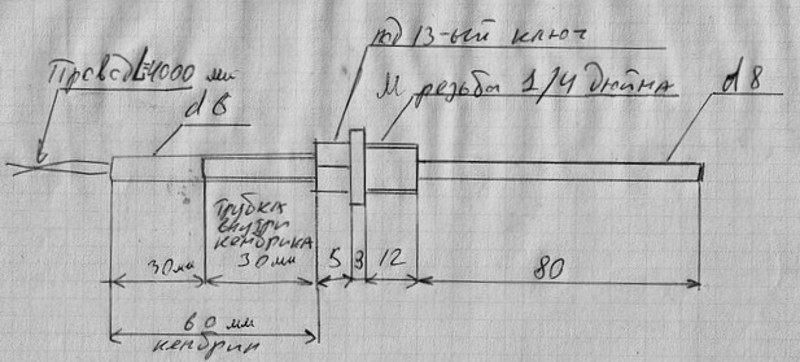 под 13-ый ключ
Провод L=4000 мм
М резьба 1/4 дюйма
d 8
d 6
трубка
внутри
кембрика
30мм
30мм
5
3
12
80
60 мм
кембрик